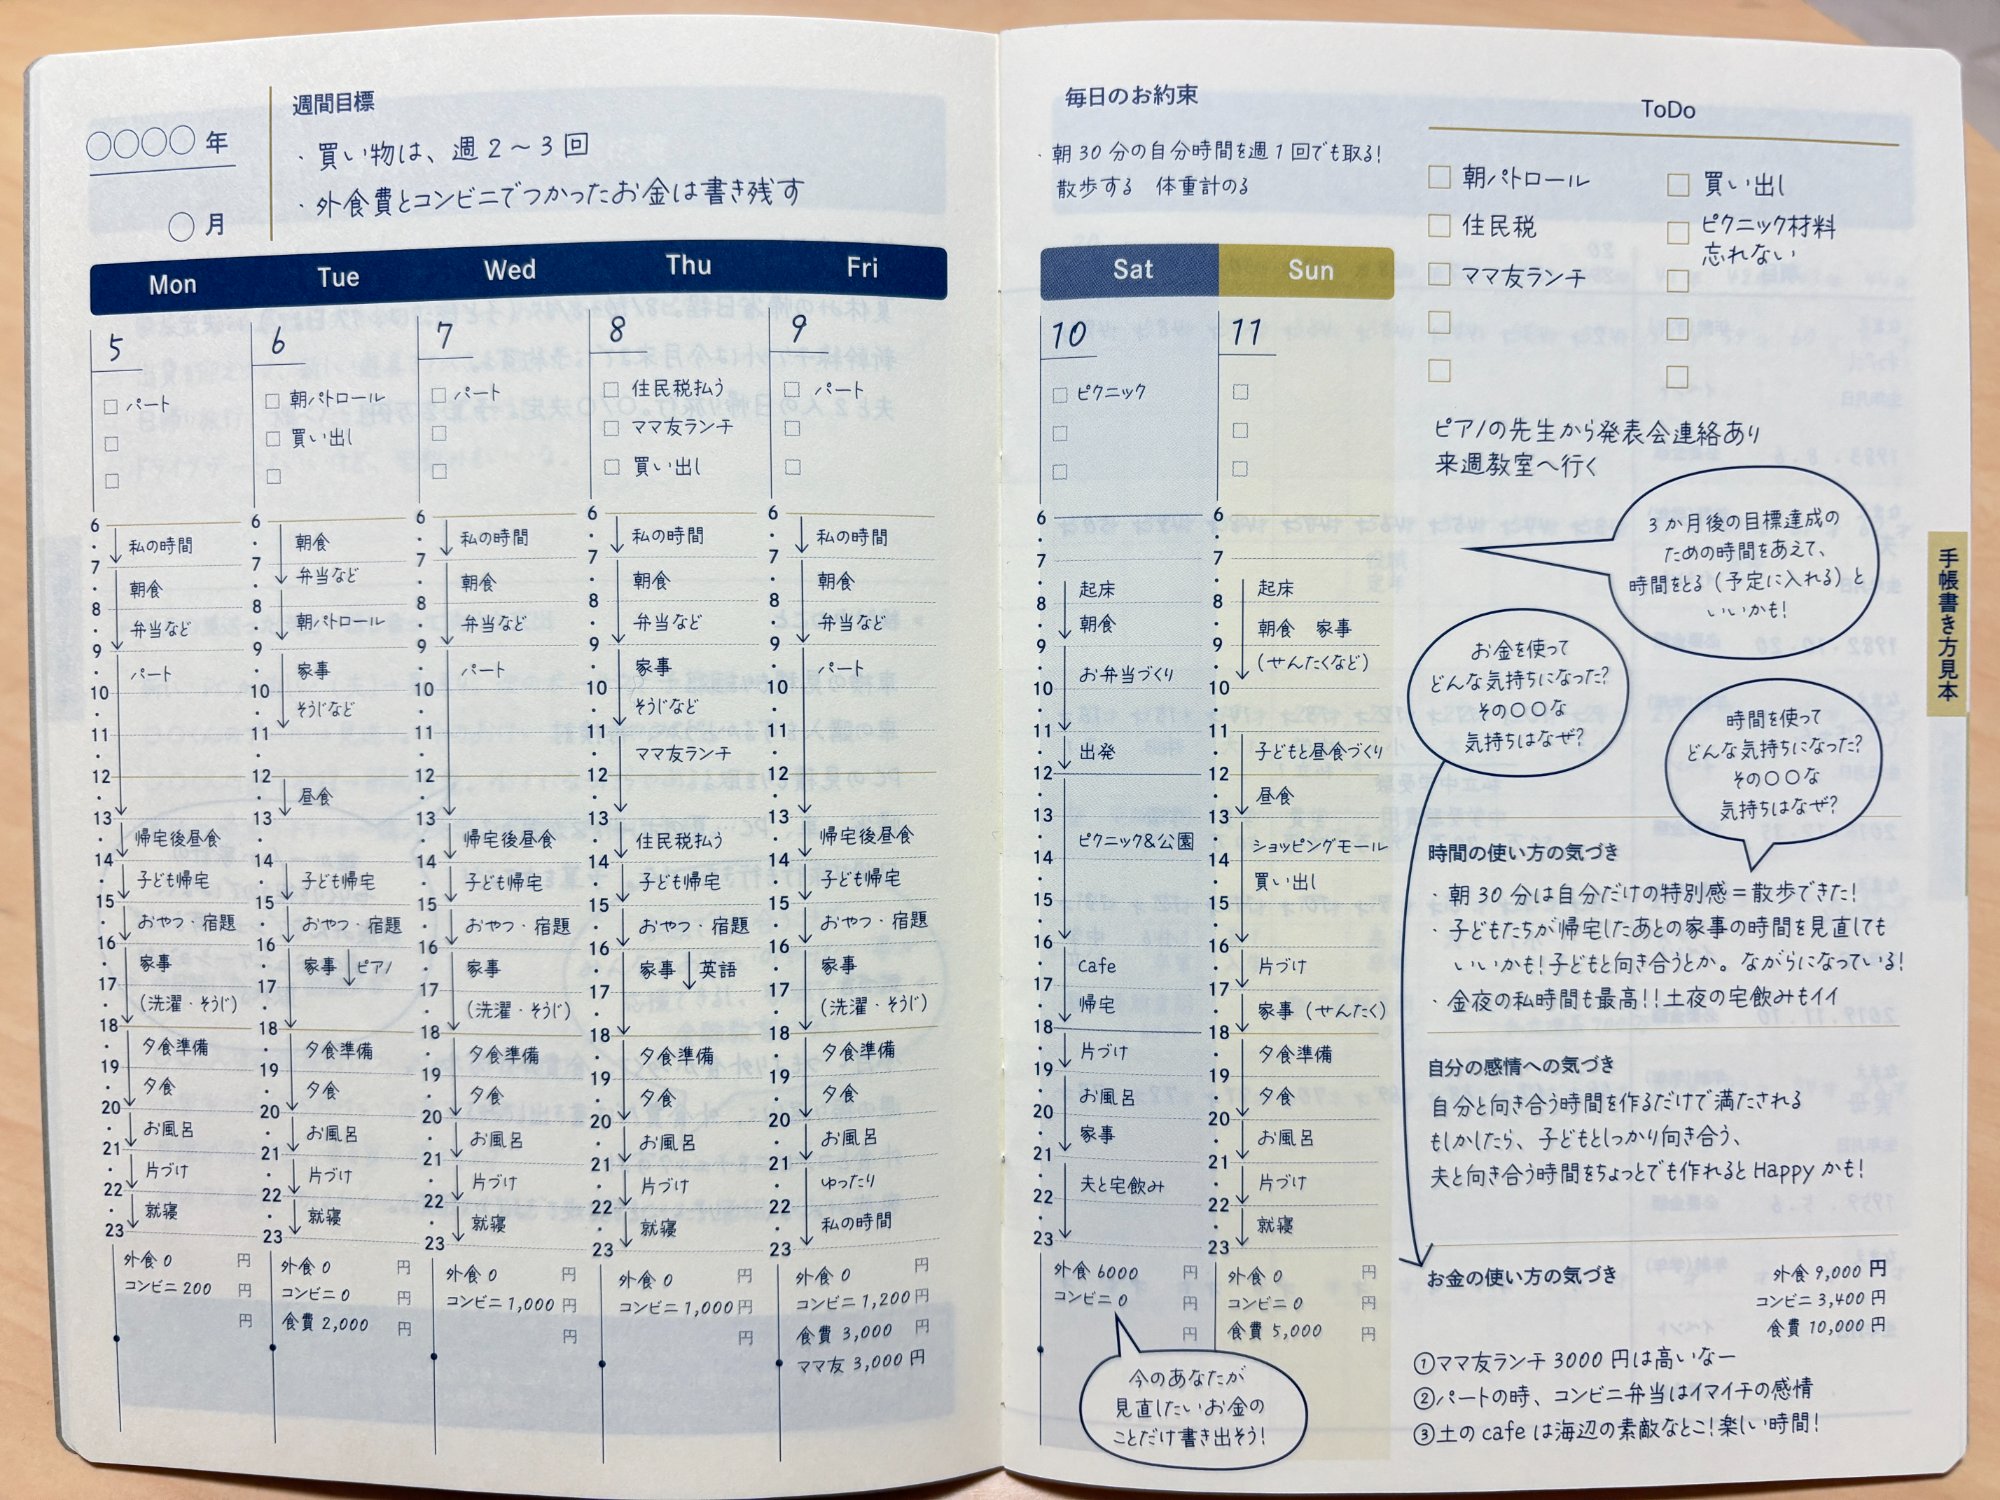 〇〇〇〇年
〇月
週間目標
・買い物は、週2〜3回
・外食費とコンビニでつかったお金は書き残す
Mon
Tue
Wed
Thu
Fri
5
□パート
□
□
6
・
7
・
8
・
9
・
10
・
11
・
12
・
13
・
14
・
15
・
16
・
17
・
18
・
19
・
20
・
21
・
22
・
23
私の時間
朝食
弁当など
パート
帰宅後昼食
子ども帰宅
おやつ・宿題
家事
(洗濯・そうじ)
夕食準備
夕食
お風呂
片づけ
就寝
外食0 円
コンビニ200 円
円
6
□朝パトロール
□買い出し
□
6
・
7
・
8
・
9
・
10
・
11
・
12
・
13
・
14
・
15
・
16
・
17
・
18
・
19
・
20
・
21
・
22
・
23
朝食
弁当など
朝パトロール
家事
そうじなど
昼食
子ども帰宅
おやつ・宿題
家事 ピアノ
夕食準備
夕食
お風呂
片づけ
就寝
外食0 円
コンビニ0 円
食費2,000 円
7
□パート
□
□
6
・
7
・
8
・
9
・
10
・
11
・
12
・
13
・
14
・
15
・
16
・
17
・
18
・
19
・
20
・
21
・
22
・
23
私の時間
朝食
弁当など
パート
帰宅後昼食
子ども帰宅
おやつ・宿題
家事
(洗濯・そうじ)
夕食準備
夕食
お風呂
片づけ
就寝
外食0 円
コンビニ1,000円
円
8
□住民税払う
□ママ友ランチ
□買い出し
6
・
7
・
8
・
9
・
10
・
11
・
12
・
13
・
14
・
15
・
16
・
17
・
18
・
19
・
20
・
21
・
22
・
23
私の時間
朝食
弁当など
家事
そうじなど
ママ友ランチ
住民税払う
子ども帰宅
おやつ・宿題
家事 英語
夕食準備
夕食
お風呂
片づけ
就寝
外食0 円
コンビニ1,000円
円
9
□パート
□
□
6
・
7
・
8
・
9
・
10
・
11
・
12
・
13
・
14
・
15
・
16
・
17
・
18
・
19
・
20
・
21
・
22
・
23
私の時間
朝食
弁当など
パート
帰宅後昼食
子ども帰宅
おやつ・宿題
家事
(洗濯・そうじ)
夕食準備
夕食
お風呂
ゆったり
私の時間
外食0 円
コンビニ1,200円
食費3,000 円
ママ友3,000円
毎日のお約束
・朝30分の自分時間を週1回でも取る!
散歩する 体重計のる
Sat
Sun
10
□ピクニック
□
□
6
・
7
・
8
・
9
・
10
・
11
・
12
・
13
・
14
・
15
・
16
・
17
・
18
・
19
・
20
・
21
・
22
・
23
起床
朝食
お弁当づくり
出発
ピクニック&公園
cafe
帰宅
片づけ
お風呂
家事
夫と宅飲み
外食6000 円
コンビニ0 円
円
今のあなたが
見直したいお金の
ことだけ書き出そう!
11
□
□
□
6
・
7
・
8
・
9
・
10
・
11
・
12
・
13
・
14
・
15
・
16
・
17
・
18
・
19
・
20
・
21
・
22
・
23
起床
朝食 家事
(せんたくなど)
子どもと昼食づくり
昼食
ショッピングモール
買い出し
片づけ
家事(せんたく)
夕食準備
夕食
お風呂
片づけ
就寝
外食0 円
コンビニ0 円
食費5,000 円
ToDo
□朝パトロール
□住民税
□ママ友ランチ
□
□
□買い出し
□ピクニック材料
忘れない
□
□
□
ピアノの先生から発表会連絡あり
来週教室へ行く
3か月後の目標達成の
ための時間をあえて、
時間をとる(予定に入れる)と
いいかも!
お金を使って
どんな気持ちになった?
その〇〇な
気持ちはなぜ?
時間を使って
どんな気持ちになった?
その〇〇な
気持ちはなぜ?
時間の使い方の気づき
・朝30分は自分だけの特別感=散歩できた!
・子どもたちが帰宅したあとの家事の時間を見直しても
いいかも!子どもと向き合うとか。ながらになっている!
・金夜の私時間も最高!!土夜の宅飲みもイイ
自分の感情への気づき
自分と向き合う時間を作るだけで満たされる
もしかしたら、子どもとしっかり向き合う、
夫と向き合う時間をちょっとでも作れるとHappyかも!
お金の使い方の気づき
外食9,000円
コンビニ3,400円
食費10,000円
①ママ友ランチ3000円は高いなー
②パートの時、コンビニ弁当はイマイチの感情
③土のcafeは海辺の素敵なとこ!楽しい時間!
手帳書き方見本